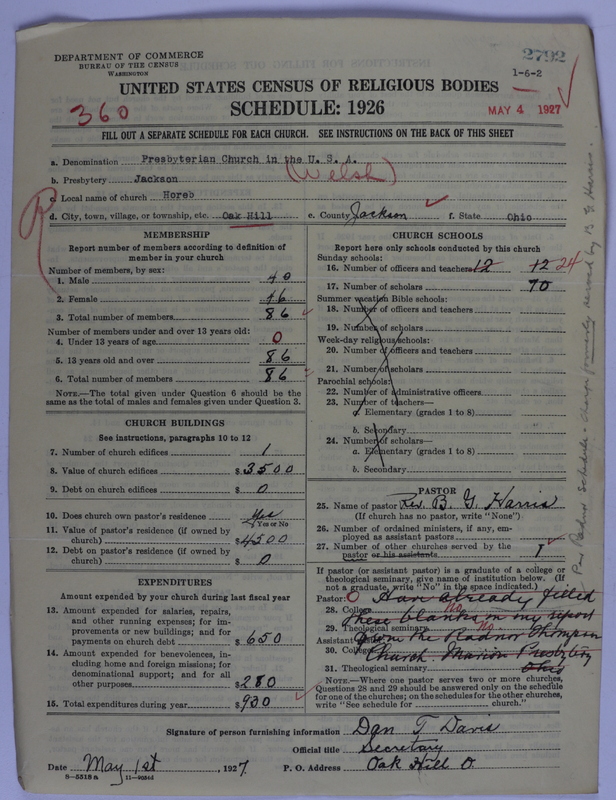 DEPARTMENT OF COMMERCE
BUREAU OF THE CENSUS
WASHINGTON
2792
1-6-2
UNITED STATES CENSUS OF RELIGIOUS BODIES
SCHEDULE: 1926
360
MAY 4 1927
FILL OUT A SEPARATE SCHEDULE FOR EACH CHURCH. SEE INSTRUCTIONS ON THE BACK OF THIS SHEET
a. Denomination Presbyterian Church in the U. S. A.
(Welsh)
b. Presbytery Jackson
c. Local name of church Horeb
R
d. City, town, village, or township, etc. Oak Hill e. County Jackson f. State Ohio
MEMBERSHIP
Report number of members according to definition of
member in your church
Number of members, by sex:
1. Male 40
2. Female 46
3. Total number of members 86
Number of members under and over 13 years old:
4. Under 13 years of age 0
5. 13 years old and over 86
6. Total number of members 86
NOTE.—The total given under Question 6 should be the
same as the total of males and females given under Question 3.
CHURCH BUILDINGS
See instructions, paragraphs 10 to 12
7. Number of church edifices 1
8. Value of church edifices $3500
9. Debt on church edifices $0
10. Does church own pastor's residence yes
Yes or No
11. Value of pastor's residence (if owned by
church) $4500
12. Debt on pastor's residence (if owned by
church) $0
EXPENDITURES
Amount expended by your church during last fiscal year
13. Amount expended for salaries, repairs,
and other running expenses; for im-
provements or new buildings; and for
payments on church debt $650
14. Amount expended for benevolences, in-
cluding home and foreign missions; for
denominational support; and for all
other purposes $280
15. Total expenditures during year $930
CHURCH SCHOOLS
Report here only schools conducted by this church
Sunday schools:
16. Number of officers and teachers 12 12 24
17. Number of scholars 70
Summer vacation Bible schools:
18. Number of officers and teachers
19. Number of scholars
Week-day religious schools:
20. Number of officers and teachers
21. Number of scholars
Parochial schools:
22. Number of administrative officers
23. Number of teachers—
a. Elementary (grades 1 to 8)
b. Secondary
24. Number of scholars—
a. Elementary (grades 1 to 8)
b. Secondary
PASTOR
25. Name of pastor Rev. B. G. Harris
(If church has no pastor, write "None")
26. Number of ordained ministers, if any, em-
ployed as assistant pastors
27. Number of other churches served by the
pastor or his assistants 1
If pastor (or assistant pastor) is a graduate of a college or
theological seminary, give name of institution below. (If
not a graduate, write "No" in the space indicated.)
Pastor: O Have already filled
28. College No
these blanks in my report
29. Theological seminary No
Assistant
from the Radnor Thompson
30. College
Church. Marion Presbytery
Ohio
31. Theological seminary
NOTE.—Where one pastor serves two or more churches,
Questions 28 and 29 should be answered only on the schedule
for one of the churches; on the schedules for the other churches,
write "See schedule for church."
Signature of person furnishing information Dan T. Davis
Official title Secretary
Date May 1st, 1927. P. O. Address Oak Hill O.
8—5318a 11—9054d
Radnor Schedule - Charge formerly served by B. G. Harris.